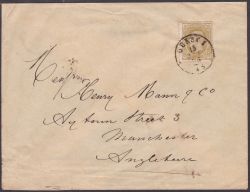 Messieurs
Henry Mann & Co
Aytoun Street 3
Manchester
Angleterre